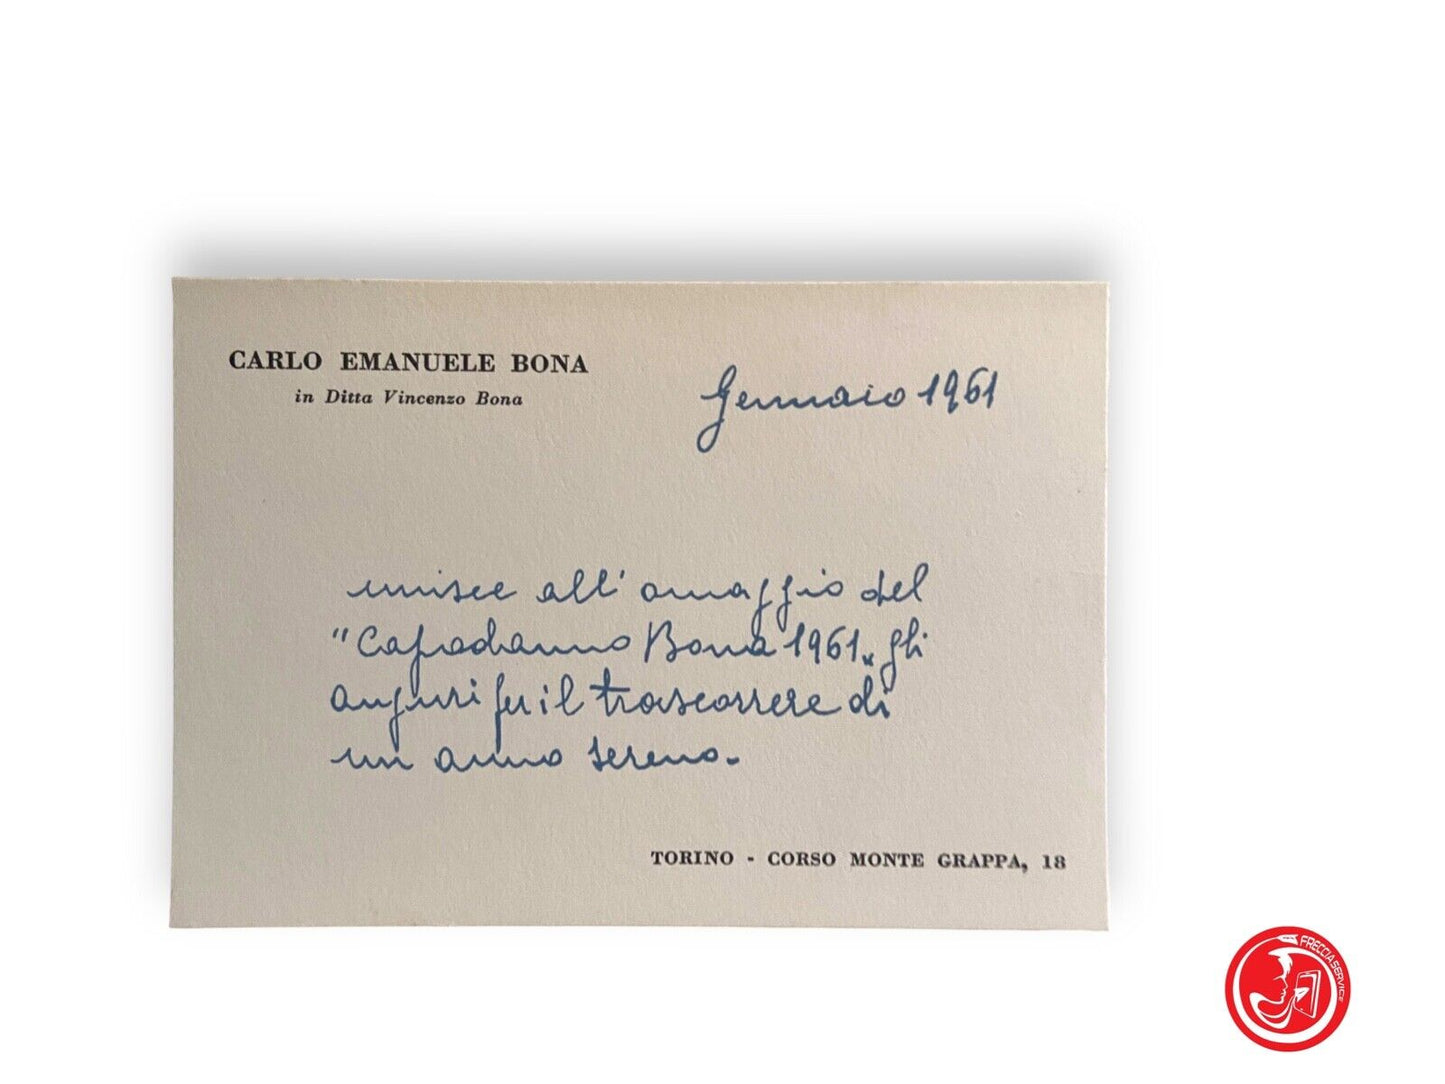 CARLO EMANUELE BONA
in Ditta Vincenzo Bona
Gennaio 1961
unisce all'omaggio del
"Capodanno Bona 1961" gli
auguri per il trascorrere di
un anno sereno.
TORINO - CORSO MONTE GRAPPA, 18
FRECCIA SERVICE